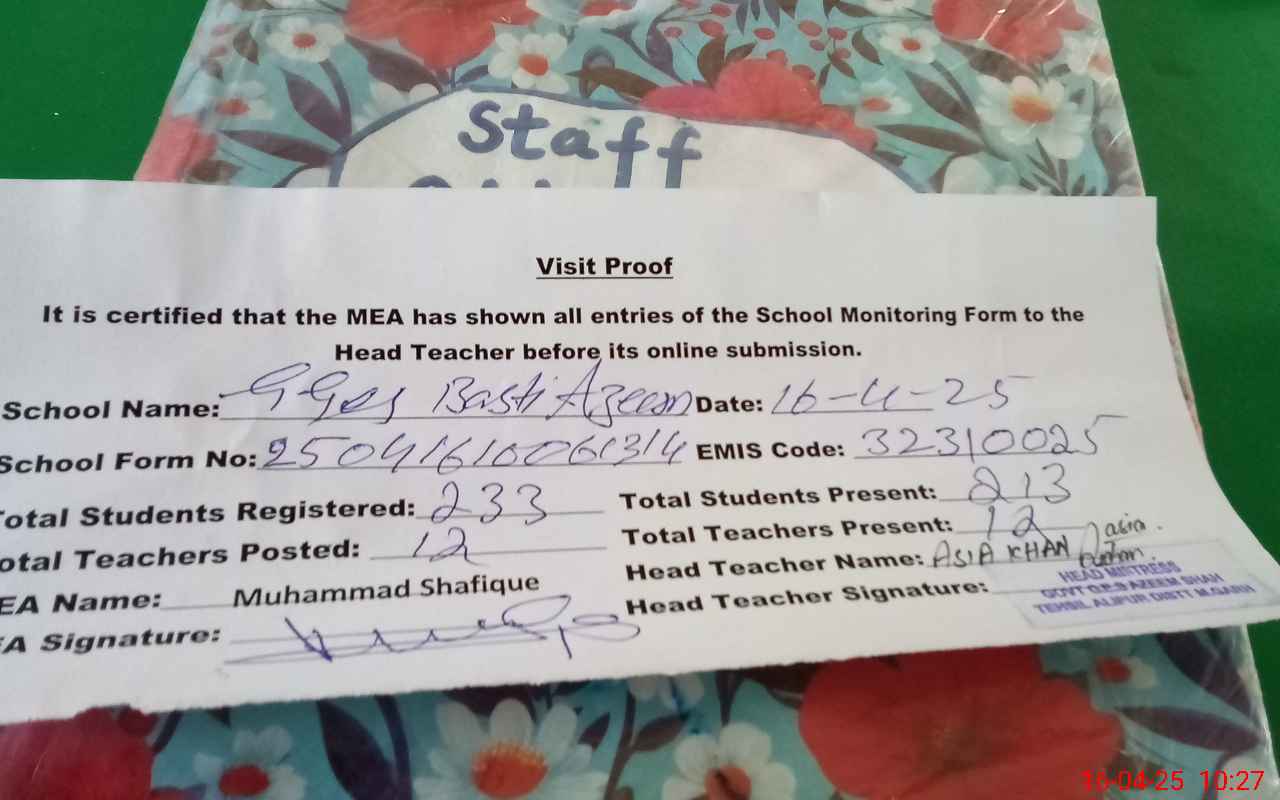 Staff
Visit Proof
It is certified that the MEA has shown all entries of the School Monitoring Form to the
Head Teacher before its online submission.
School Name: GGES Basti Azeem Date: 16-4-25
School Form No: 25041610061314 EMIS Code: 32310025
Total Students Registered: 233 Total Students Present: 213
otal Teachers Posted: 12 Total Teachers Present: 12
EA Name: Muhammad Shafique Head Teacher Name: ASIA KHAN asia
A Signature: Head Teacher Signature:
HEAD MISTRESS
GOVT G.E.S AZEEM SHAH
TEHSIL ALIPUR DISTT M.GARH
16-04-25 10:27